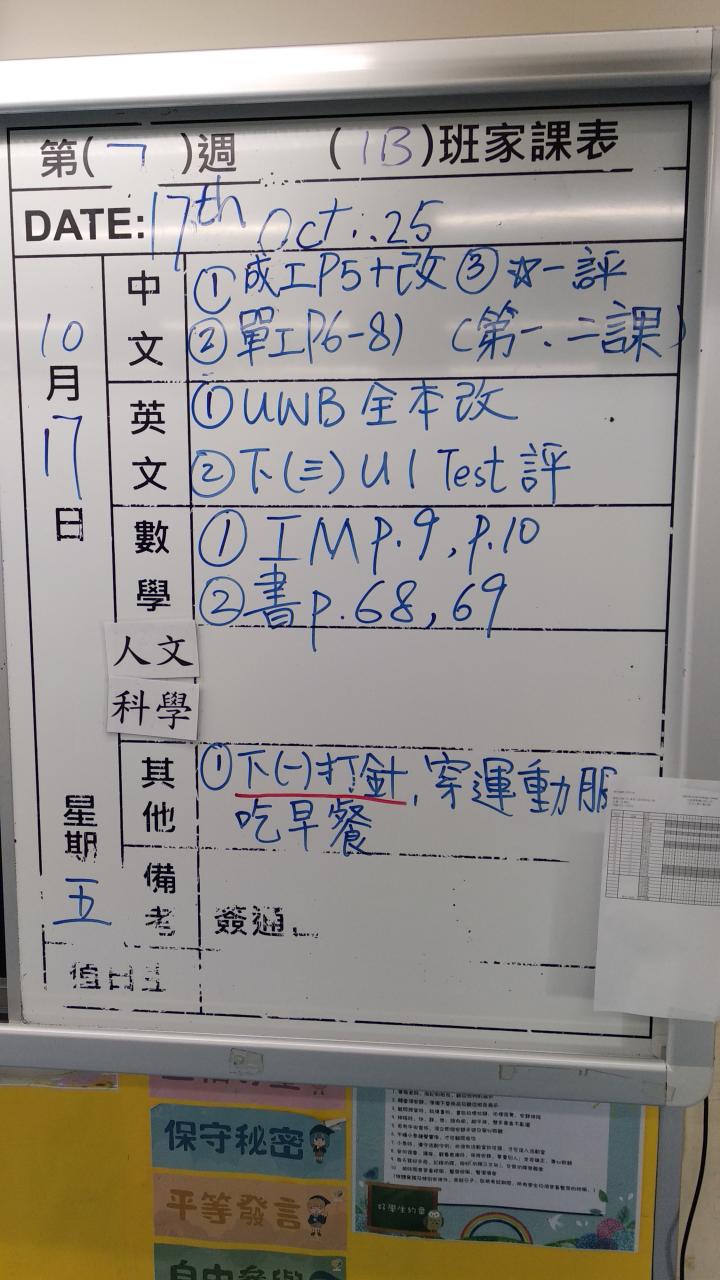 第(7)週 (1B)班家課表
DATE: 17th Oct..25
10月17日
星期五
中文
①成工P5+改 ③☆一評
②單工P6-8) (第一、二課)
英文
①UWB全本改
②下(三) U1 Test評
數學
①IM p.9, p.10
②書p.68, 69
人文
科學
其他
①下(一)打針, 穿運動服
吃早餐
備考
簽通.
值日生
保守秘密
平等發言
好學生約章